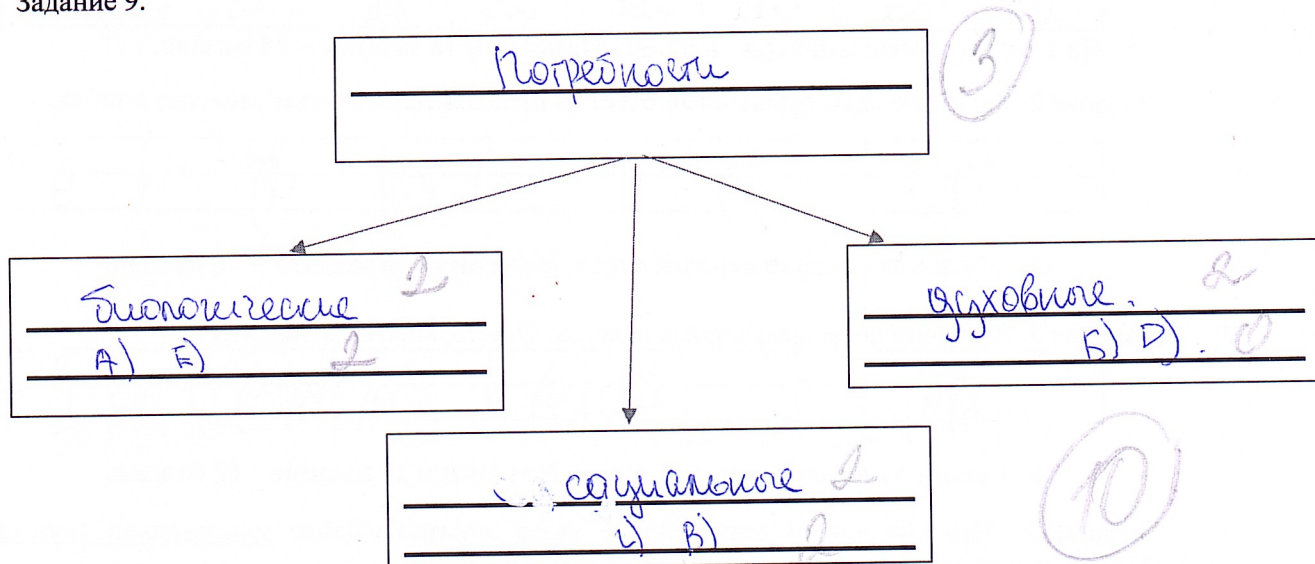 Задание 9.
Потребности
3
биологические 2
А) Е) 2
духовные. 2
Б) D). 0
социальные 2
В) 2
10